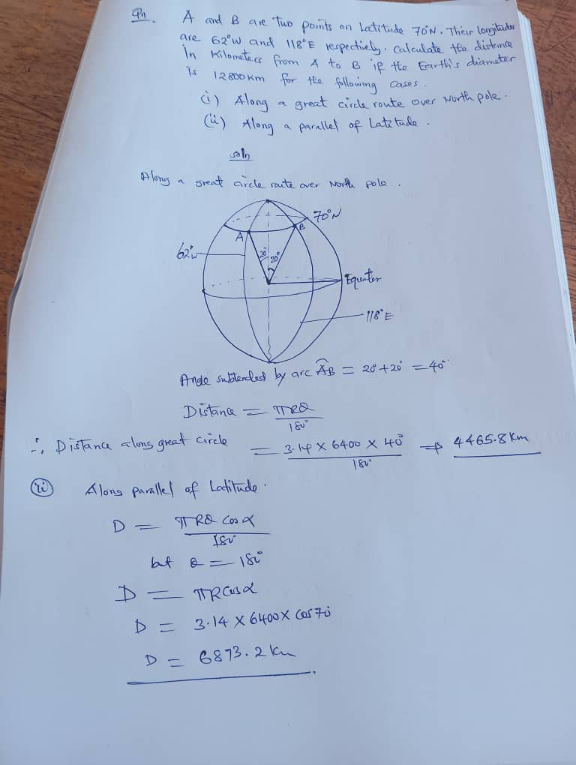 Qn. A and B are two points on Latitude 70°N. Their longitudes
are 62°W and 118°E respectively. Calculate the distance
In Kilometers from A to B if the Earth's diameter
is 12800km for the following cases.
(i) Along a great circle route over North pole.
(ii) Along a parallel of Latitude.
soln
Along a great circle route over North pole.
70°N
A
B
62°W
20°
20°
Equator
118°E
Angle subtended by arc AB = 20° + 20° = 40°
Distance = πRθ
180°
∴ Distance along great circle = 3.14 × 6400 × 40° ⇒ 4465.8 km
180°
(ii) Along parallel of Latitude.
D = πRθ cos α
180°
but θ = 180°
D = πR cos α
D = 3.14 × 6400 × cos 70°
D = 6873.2 km